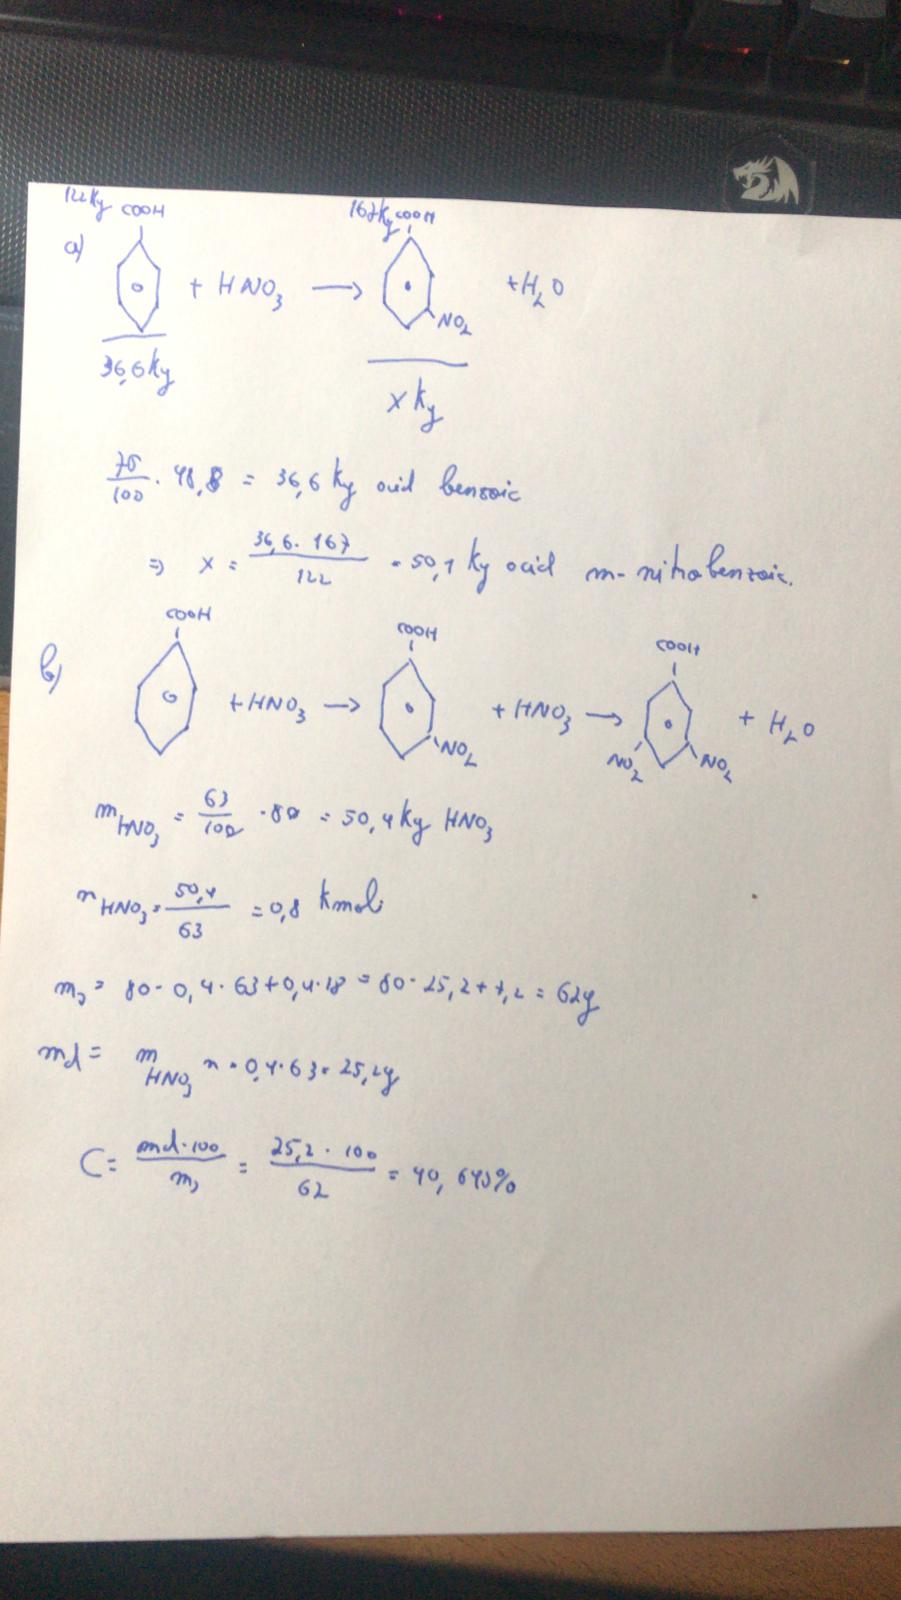 122 Kg COOH 167 Kg COOH
a) + HNO3 → NO2 + H2O
36,6 Kg
x Kg
75/100 · 48,8 = 36,6 Kg acid benzoic
⇒ x = 36,6 · 167 / 122 = 50,1 Kg acid m-nitrobenzoic.
COOH COOH COOH
b) + HNO3 → NO2 + HNO3 → NO2 NO2 + H2O
mHNO3 = 63/100 · 80 = 50,4 Kg HNO3
nHNO3 = 50,4/63 = 0,8 Kmoli
ms = 80 - 0,4 · 63 + 0,4 · 18 = 80 - 25,2 + 7,2 = 62g
md = mHNO3 n = 0,4 · 63 = 25,2g
C = md · 100 / ms = 25,2 · 100 / 62 = 40,645%